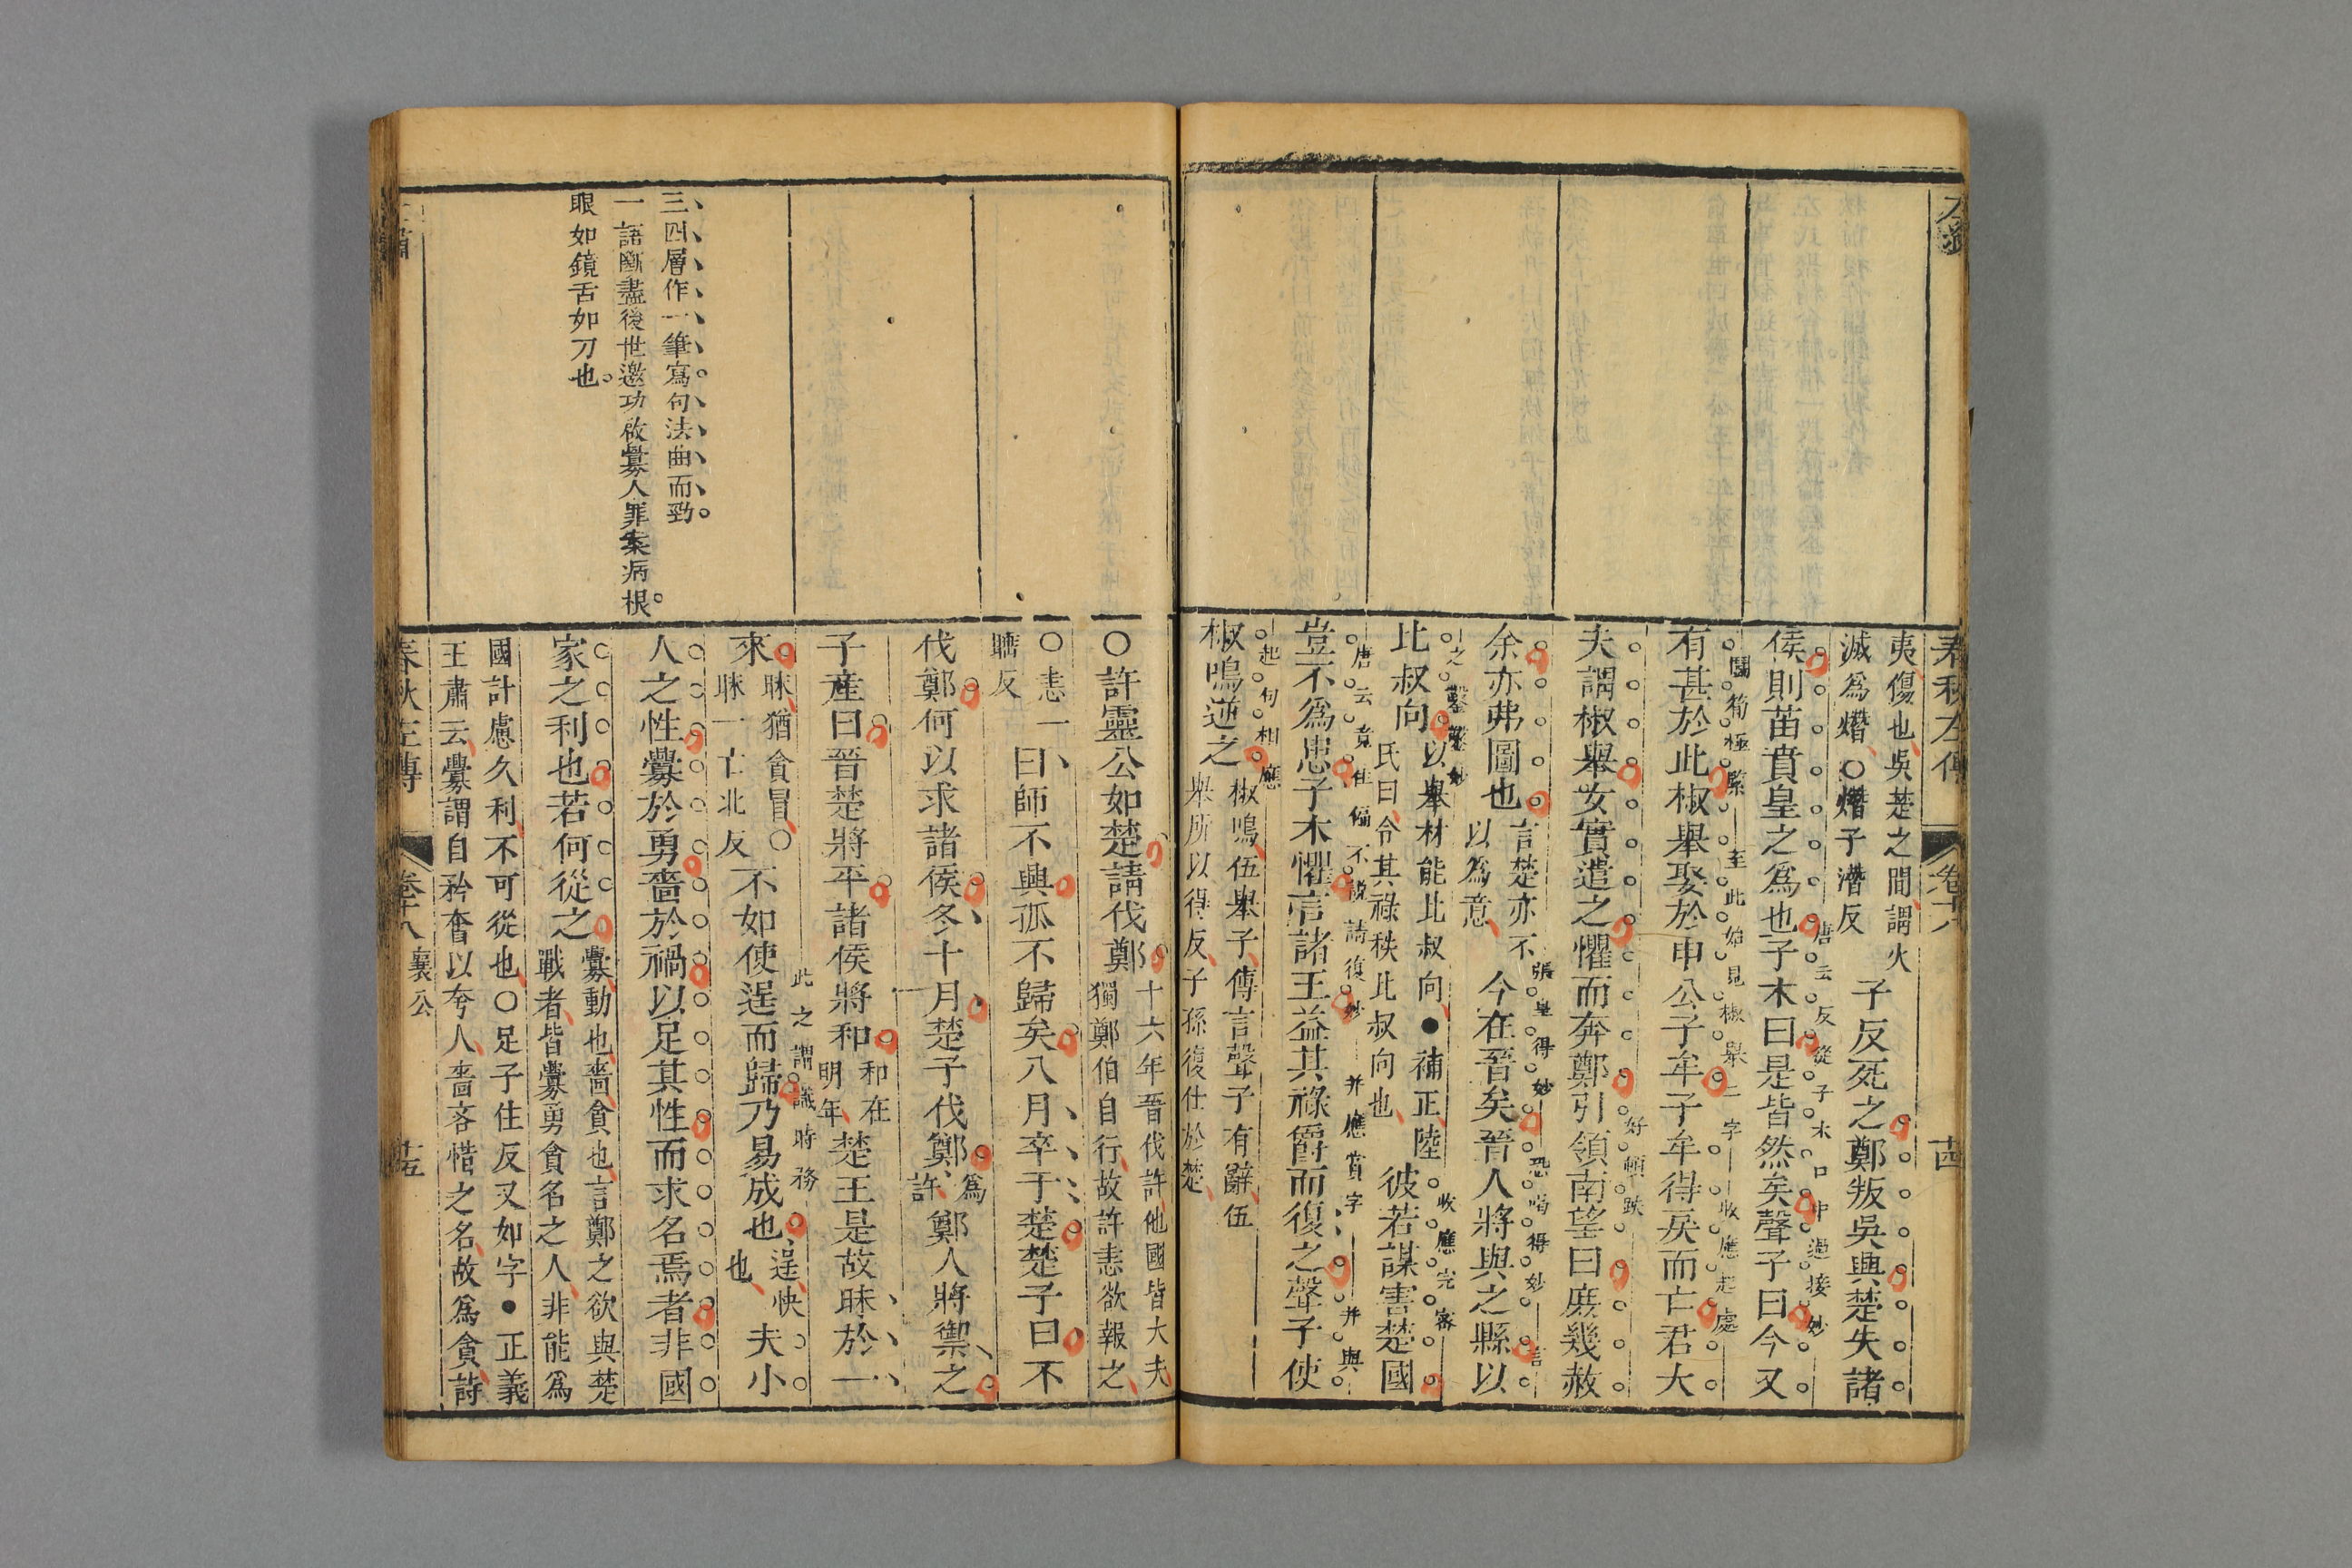 春秋左傳
卷十八
十四
夷傷也吳楚之間謂火
滅爲熸○熸子潛反
子反死之鄭叛吳興楚失諸
侯則苗賁皇之爲也子木曰是皆然矣聲子曰今又
唐云反從子木口中過接妙
有甚於此椒舉娶於申公子牟子牟得戾而亡君大
至此始見椒舉二字
收應起處
夫謂椒舉女實遣之懼而奔鄭引領南望曰庶幾赦
好頓跌
余亦弗圖也
言楚亦不
以爲意
今在晉矣晉人將與之縣以
張皇得妙
恐喝得妙
比叔向
以舉材能比叔向●補正陸
氏曰令其祿秩比叔向也
彼若謀害楚國
收應完密
豈不爲患子木懼言諸王益其祿爵而復之聲子使
唐云竟住偏不說請復妙
并應賞字
椒鳴逆之
起句相應
椒鳴伍舉子傳言聲子有辭伍
舉所以得反子孫復仕於楚
○許靈公如楚請伐鄭
十六年晉伐許他國皆大夫
獨鄭伯自行故許恚欲報之
○恚一
睡反
曰師不興孤不歸矣八月卒于楚楚子曰不
伐鄭何以求諸侯冬十月楚子伐鄭
爲
許
鄭人將禦之
子產曰晉楚將平諸侯將和
和在
明年
楚王是故昧於一
來
昧猶貪冒○
昧一亡北反
不如使逞而歸乃易成也
此之謂識時務
逞快
也
夫小
人之性釁於勇嗇於禍以足其性而求名焉者非國
家之利也若何從之
釁動也嗇貪也言鄭之欲與楚
戰者皆釁勇貪名之人非能爲
國計慮久利不可從也○足子住反又如字●正義
王肅云釁謂自矜奮以夸人嗇吝惜之名故爲貪詩
三四層作一筆寫句法曲而勁
一語斷盡後世邀功啟釁人罪案病根
眼如鏡舌如刀也
春秋左傳
卷十八
襄公
十五